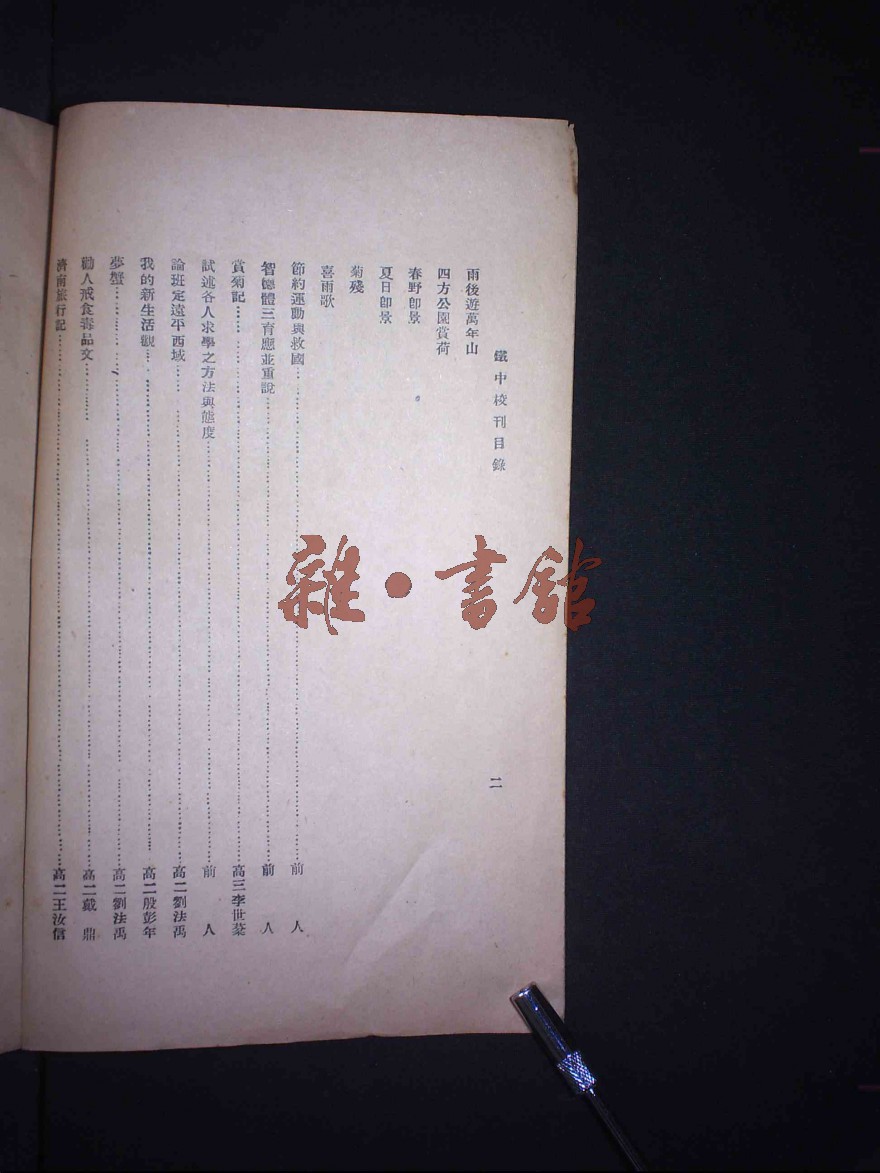 鐵中校刊目錄 二
雨後遊萬年山
四方公園賞荷
春野卽景
夏日卽景
菊殘
喜雨歌
節約運動與救國……前人
智德體三育應並重說……前人
賞菊記……高三李世棻
試述各人求學之方法與態度……前人
論班定遠平西域……高二劉法禹
我的新生活觀……高二殷彭年
夢蟹……高二劉法禹
勸人戒食毒品文……高二戴鼎
濟南旅行記……高二王汝信
雜·書館